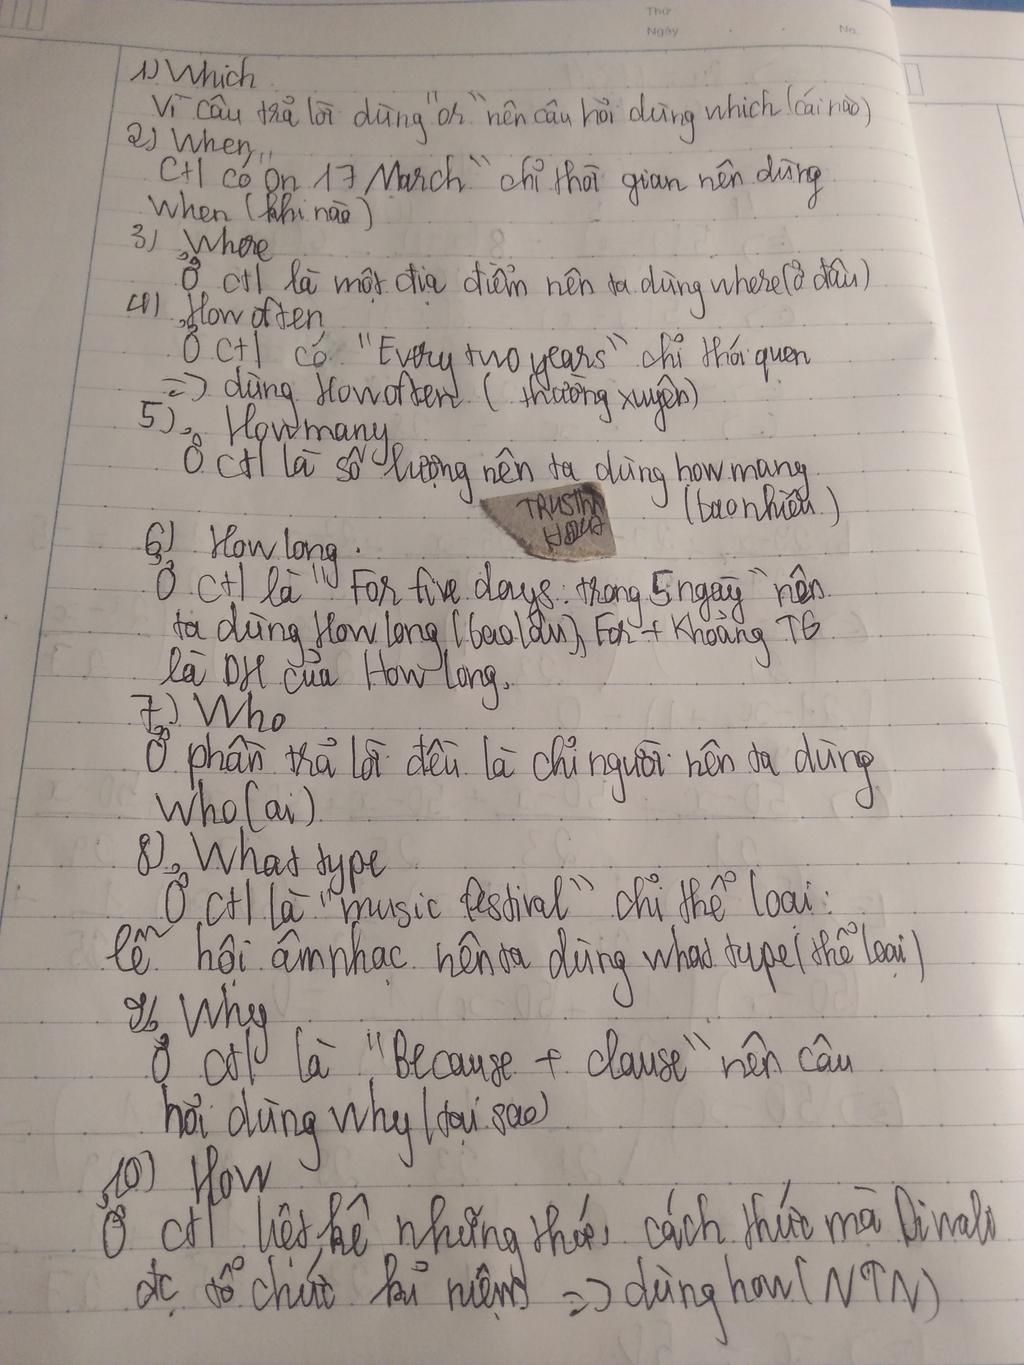 Thứ
Ngày No.
1) Which
Vì câu trả lời dùng "or" nên câu hỏi dùng which (cái nào)
2) When
Ctl có "On 17 March" chỉ thời gian nên dùng
When (khi nào)
3) Where
Ở ctl là một địa điểm nên ta dùng where (ở đâu)
4) How often
Ở ctl có "Every two years" chỉ thói quen
=> dùng How often ( thường xuyên)
5) How many
Ở ctl là số lượng nên ta dùng how many
(bao nhiêu)
TRUSTHV
HOU
6) How long.
Ở ctl là "For five days: trong 5 ngày" nên
ta dùng How long (bao lâu), For + Khoảng TG
là DH của How long.
7) Who
Ở phần trả lời đều là chỉ người nên ta dùng
Who (ai)
8) What type
Ở ctl là "music festival" chỉ thể loại:
lễ hội âm nhạc nên ta dùng what type (thể loại)
9) Why
Ở ctl là "Because + clause" nên câu
hỏi dùng why (tại sao)
10) How
Ở ctl liệt kê những thứ, cách thức mà Diwali
đc tổ chức kỉ niệm => dùng how (NTN)